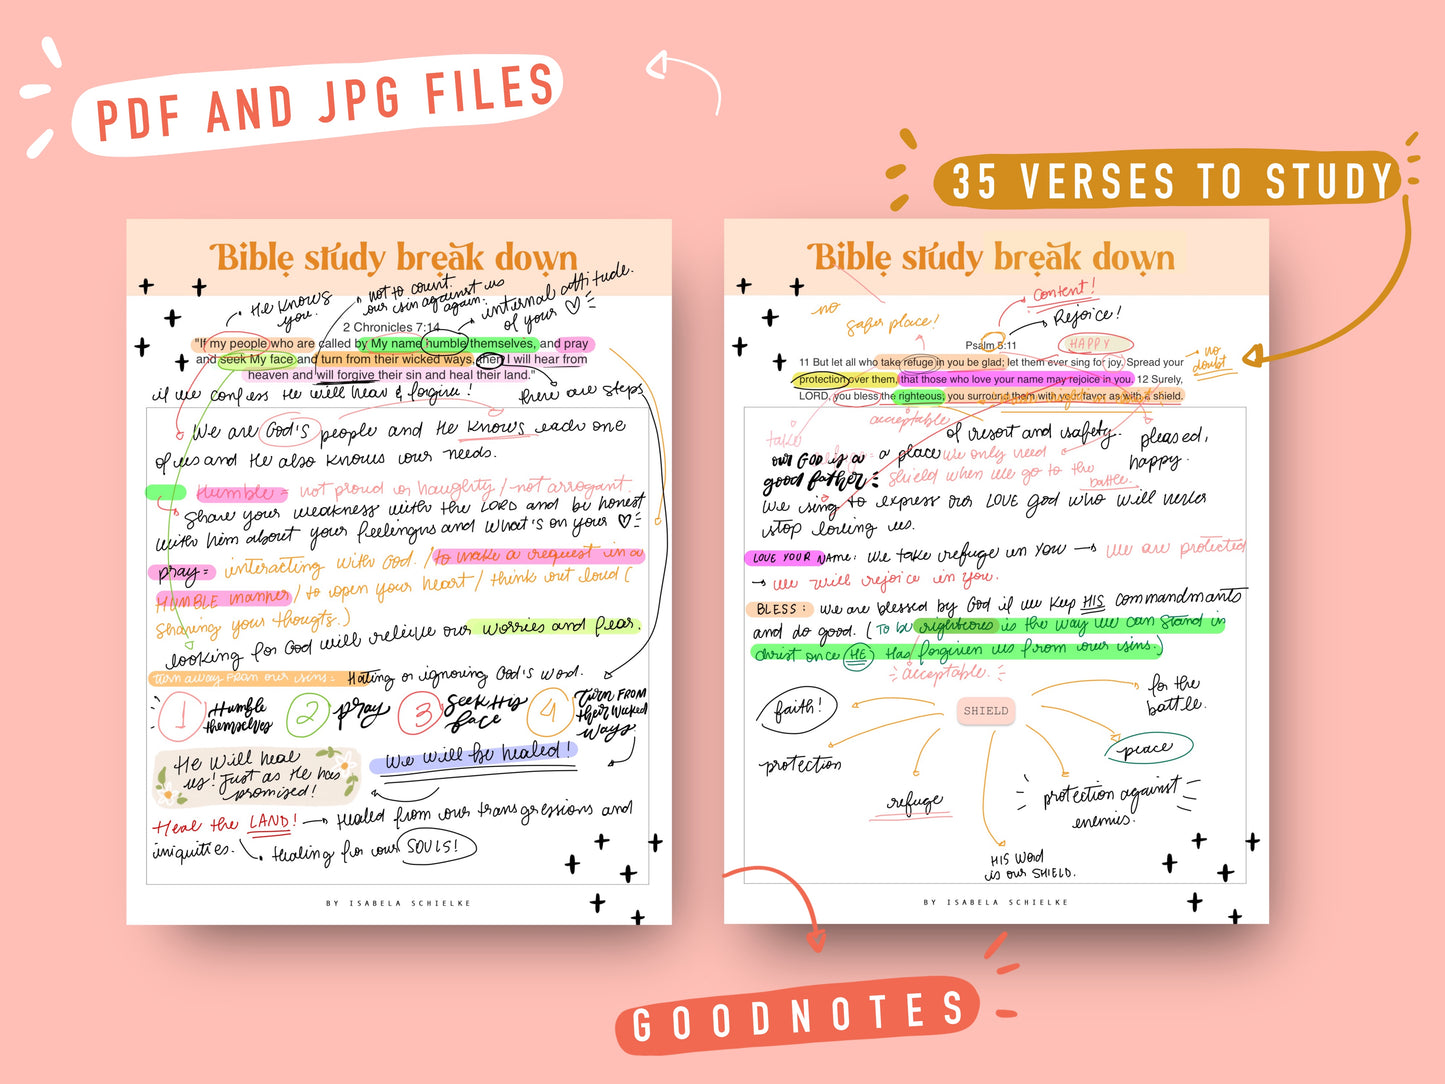 PDF AND JPG FILES
35 VERSES TO STUDY
Bible study break down
He knows you.
not to count our sin against us again.
internal attitude of your
2 Chronicles 7:14
"If my people who are called by My name humble themselves, and pray
and seek My face and turn from their wicked ways, then I will hear from
heaven and will forgive their sin and heal their land."
if we confess He will hear & forgive!
there are steps
We are God's people and He knows each one
of us and He also knows our needs.
Humble = not proud or haughty / not arrogant.
Share your weakness with the LORD and be honest
with him about your feelings and what's on your
pray = interacting with God. / to make a request in a
HUMBLE manner / to open your heart / think out loud (
Sharing your thougts.)
looking for God will relieve our worries and fear.
turn away from our sins: Hating or ignoring God's word.
1 Humble themselves
2 pray
3 Seek His face
4 Turn FROM their wicked ways.
He will heal
us! Just as He has
promised!
We will be healed!
Heal the LAND! → Healed from our transgressions and
iniquities. Healing for our SOULS!
BY ISABELA SCHIELKE
Bible study break down
no safer place!
Content!
Rejoice!
Psalm 5:11
HAPPY
11 But let all who take refuge in you be glad; let them ever sing for joy. Spread your
protection over them, that those who love your name may rejoice in you. 12 Surely,
LORD, you bless the righteous; you surround them with your favor as with a shield.
no doubt
acceptable
take
refuge = a place of resort and safety.
pleased, happy.
our GOD is a good father
We only need
shield when we go to the battle.
We sing to express our LOVE God who will never
stop loving us.
LOVE YOUR NAME: We take refuge in YOU → We are protected
→ We will rejoice in you.
BLESS: We are blessed by God if we keep HIS commandmants
and do good. (To be righteous is the way we can stand in
christ once HE Has forgiven us from our sins.)
acceptable.
SHIELD
faith!
protection
refuge
HIS Word
is our SHIELD.
protection against
enemis.
peace
for the
battle.
BY ISABELA SCHIELKE
GOODNOTES